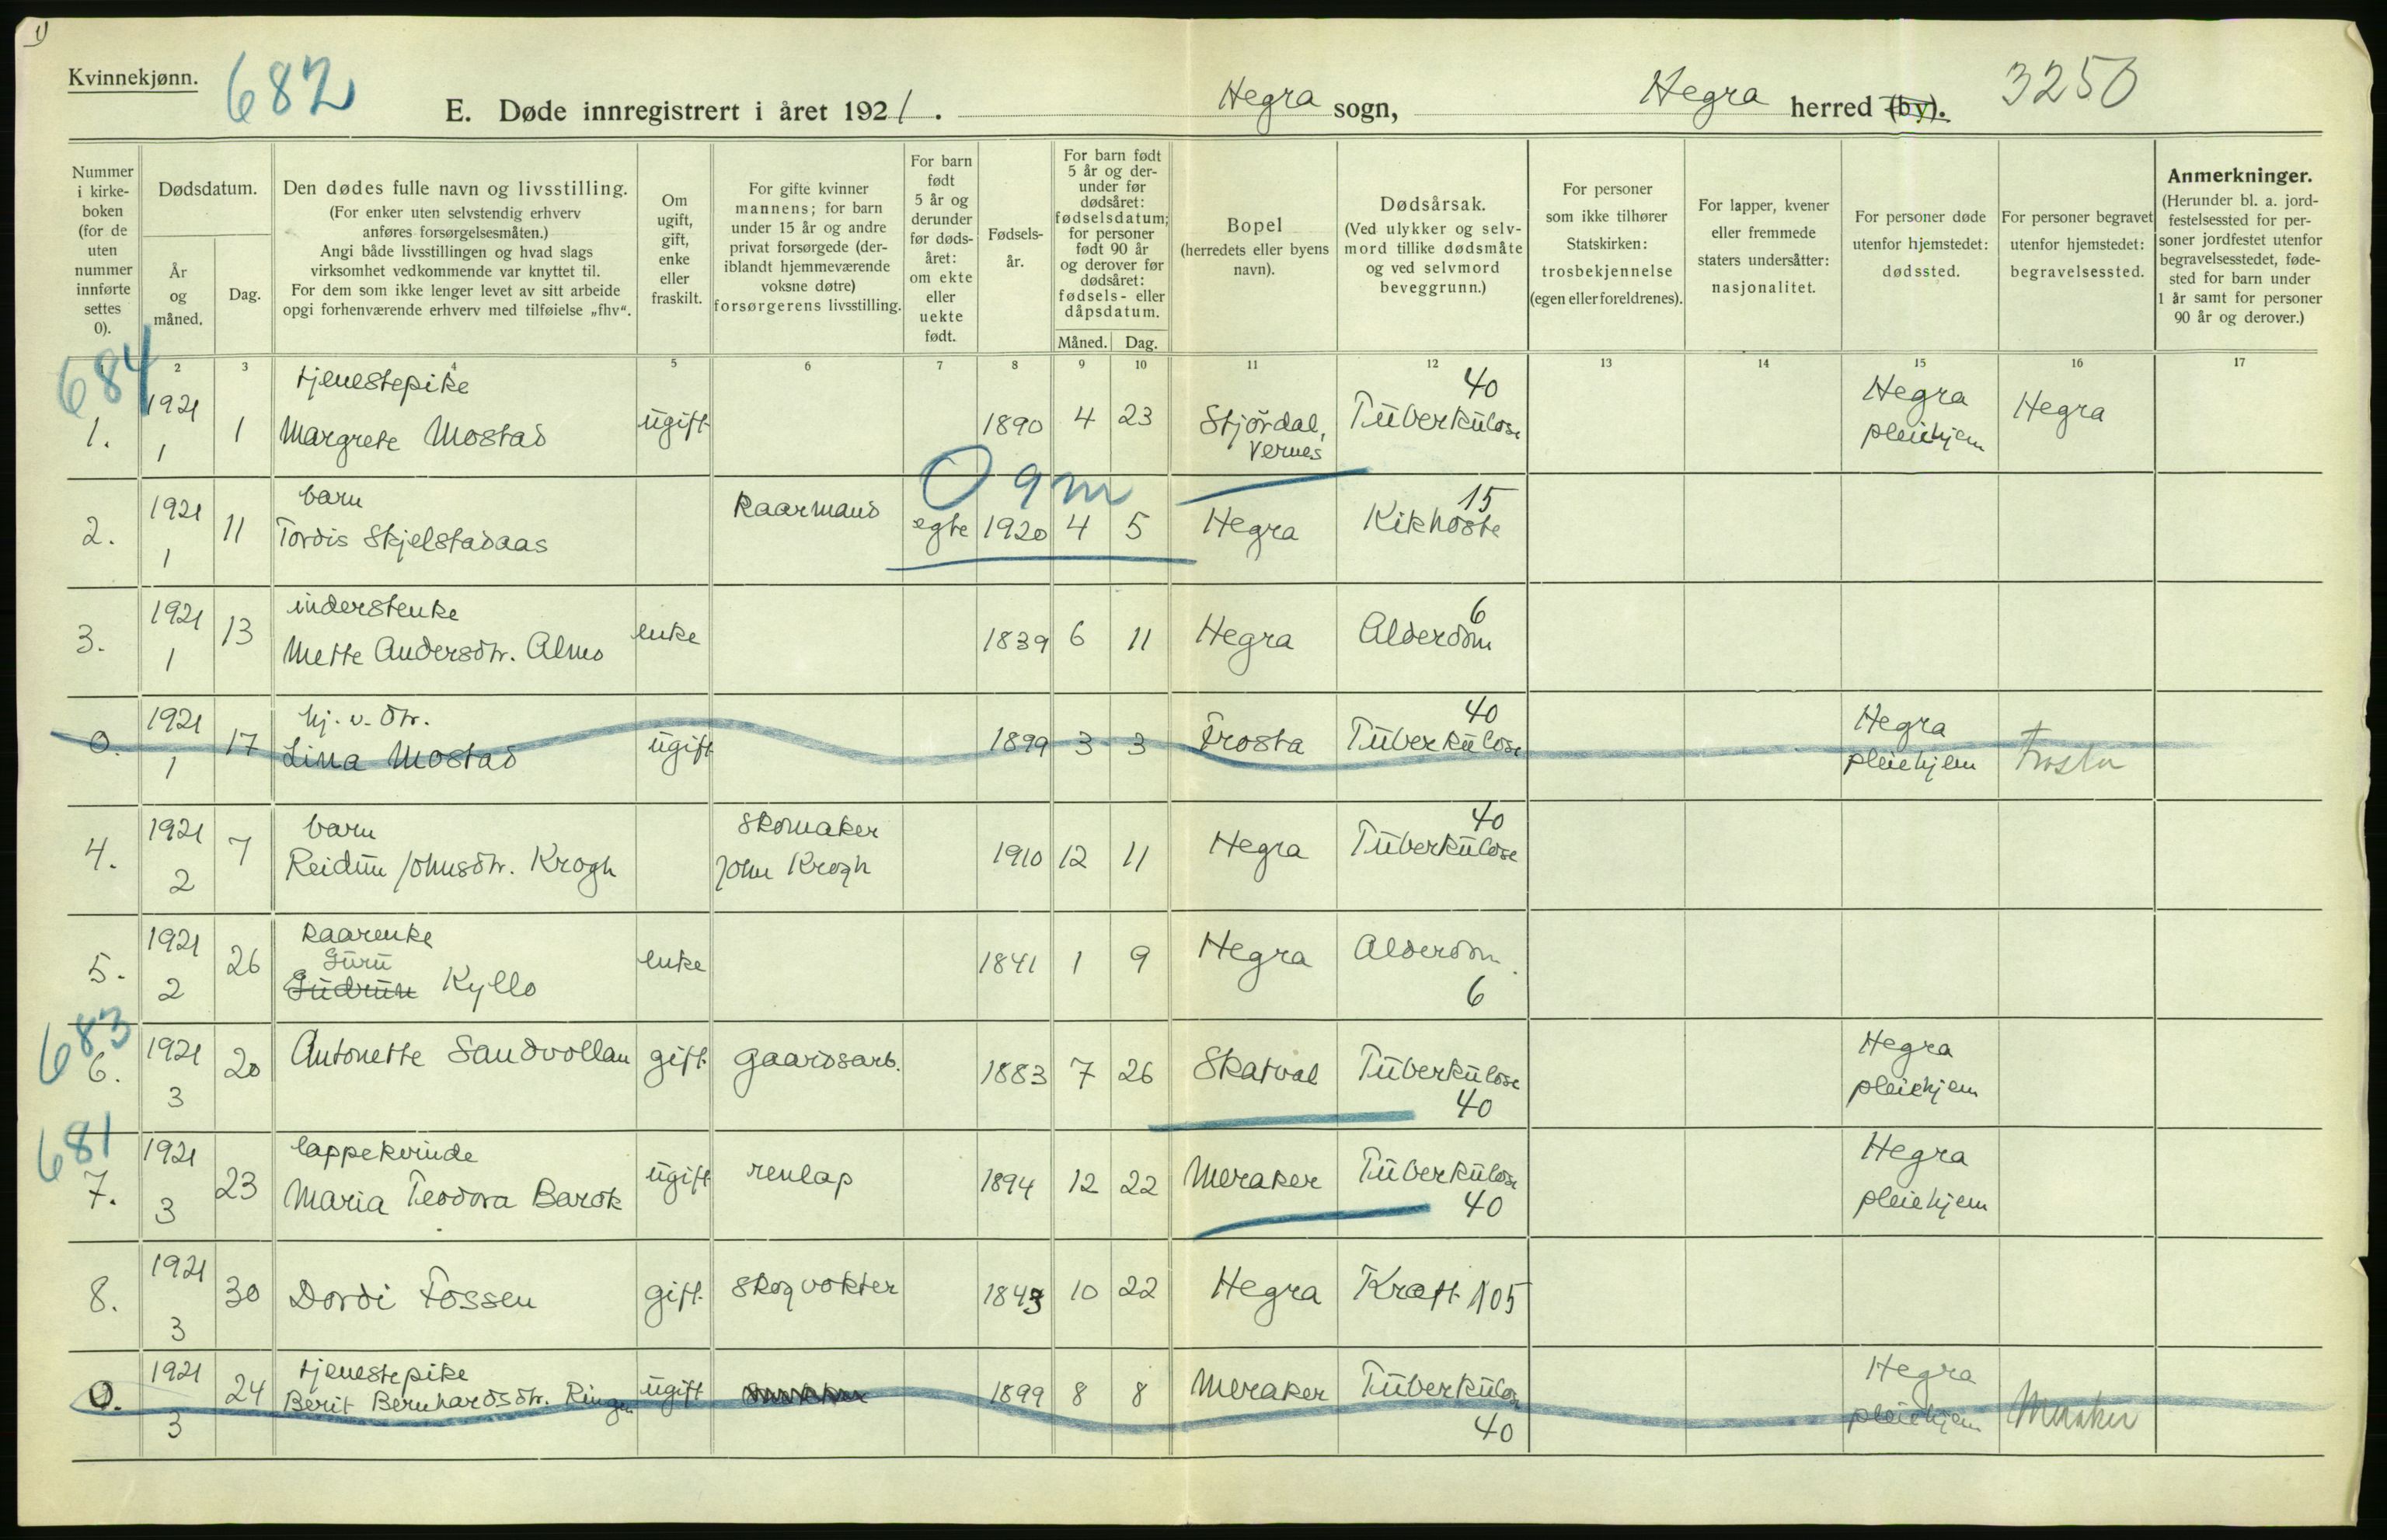 1)
Kvinnekjønn.
682
E. Døde innregistrert i året 1921. Hegra sogn, Hegra herred (by). 3250
Nummer i kirke-boken (for de uten nummer innførte settes 0).
Dødsdatum.
År og måned.
Dag.
Den dødes fulle navn og livsstilling.
(For enker uten selvstendig erhverv anføres forsørgelsesmåten.)
Angi både livsstillingen og hvad slags virksomhet vedkommende var knyttet til.
For dem som ikke lenger levet av sitt arbeide opgi forhenværende erhverv med tilføielse „fhv“.
Om ugift, gift, enke eller fraskilt.
For gifte kvinner mannens; for barn under 15 år og andre privat forsørgede (der-iblandt hjemmeværende voksne døtre) forsørgerens livsstilling.
For barn født 5 år og derunder før døds-året: om ekte eller uekte født.
Fødsels-år.
For barn født 5 år og der-under før dødsåret: fødselsdatum; for personer født 90 år og derover før dødsåret: fødsels- eller dåpsdatum.
Måned. Dag.
Bopel
(herredets eller byens navn).
Dødsårsak.
(Ved ulykker og selv-mord tillike dødsmåte og ved selvmord beveggrunn.)
For personer som ikke tilhører Statskirken: trosbekjennelse (egen eller foreldrenes).
For lapper, kvener eller fremmede staters undersåtter: nasjonalitet.
For personer døde utenfor hjemstedet: dødssted.
For personer begravet utenfor hjemstedet: begravelsessted.
Anmerkninger.
(Herunder bl. a. jord-festelsessted for per-soner jordfestet utenfor begravelsesstedet, føde-sted for barn under 1 år samt for personer 90 år og derover.)
1 2 3 4 5 6 7 8 9 10 11 12 13 14 15 16 17
684
1. 1921 1 1 tjenestepike Margrete Mostad ugift 1890 4 23 Stjördal, Vernes Tuberkulose 40 Hegra pleiehjem Hegra
0 9 m
2. 1921 1 11 barn Tordis Skjelstadaas kaarmand egte 1920 4 5 Hegra Kikhoste 15
3. 1921 1 13 inderstenke Mette Andersdtr. Almo enke 1839 6 11 Hegra Alderdom 6
0. 1921 1 17 hj. v. dtr. Lina Mostad ugift 1899 3 3 Frosta Tuberkulose 40 Hegra pleiehjem Frosta
4. 1921 2 7 barn Reidun Johnsdtr. Krogh skomaker John Krogh 1910 12 11 Hegra Tuberkulose 40
5. 1921 2 26 kaarenke Guru Gudrun Kyllo enke 1841 1 9 Hegra Alderdom 6
683
6. 1921 3 20 Antonette Sandvollan gift gaardsarb. 1883 7 26 Skatval Tuberkulose 40 Hegra pleiehjem
681
7. 1921 3 23 lappekvinde Maria Teodora Barok ugift renlap 1894 12 22 Meraker Tuberkulose 40 Hegra pleiehjem
8. 1921 3 30 Dordi Fossen gift skogvokter 1843 10 22 Hegra Kræft 105
0. 1921 3 24 tjenestepike Berit Bernhardsdtr. Ringen ugift 1899 8 8 Meraker Tuberkulose 40 Hegra pleiehjem Meraker